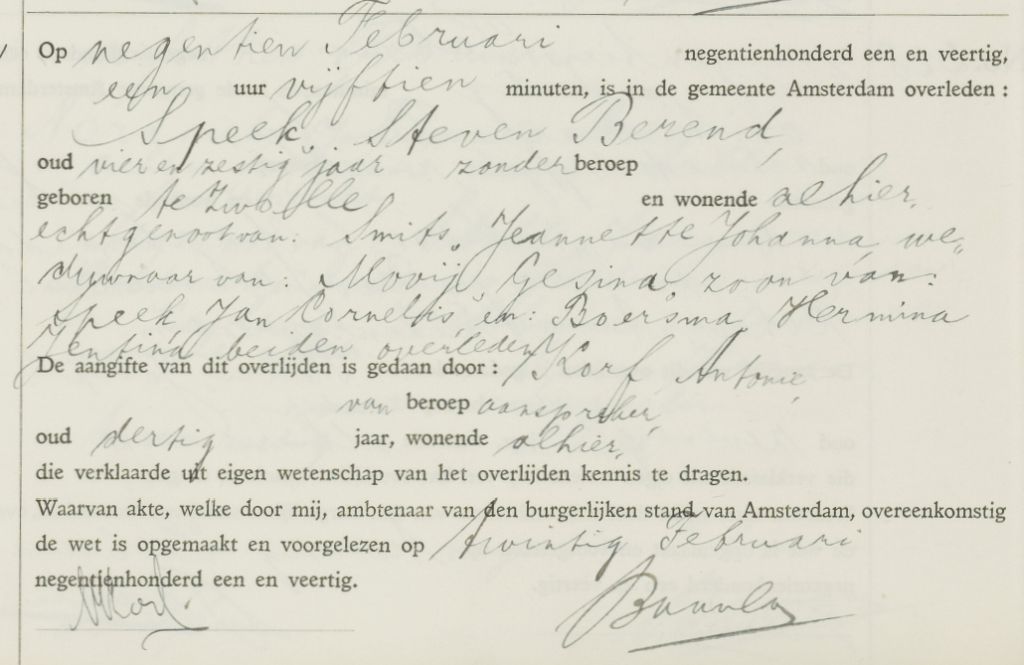 Op negentien Februari negentienhonderd een en veertig,
een uur vijftien minuten, is in de gemeente Amsterdam overleden :
Speek, Steven Berend,
oud vier en zestig jaar zonder beroep
geboren te Zwolle en wonende alhier,
echtgenoot van: Smits, Jeannette Johanna we„
duwnaar van: Mooij, Gesina, zoon van:
Speek, Jan Cornelis, en: Boersma, Hermina
Jentina, beiden overleden.
De aangifte van dit overlijden is gedaan door : Korf Antonie,
van beroep aanspreker,
oud dertig jaar, wonende alhier,
die verklaarde uit eigen wetenschap van het overlijden kennis te dragen.
Waarvan akte, welke door mij, ambtenaar van den burgerlijken stand van Amsterdam, overeenkomstig
de wet is opgemaakt en voorgelezen op twintig Februari
negentienhonderd een en veertig.
Korf.